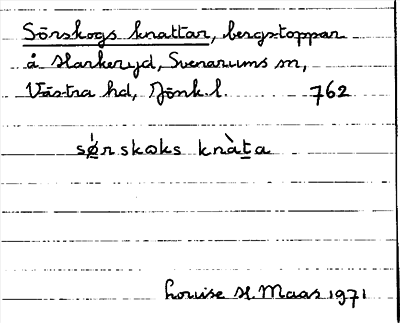 Sörskogs knattar, bergstoppar
å Harkeryd, Svenarums sn,
Västra hd, Jönk. l. 762
sørskoks knàta
Louise H. Maas 1971